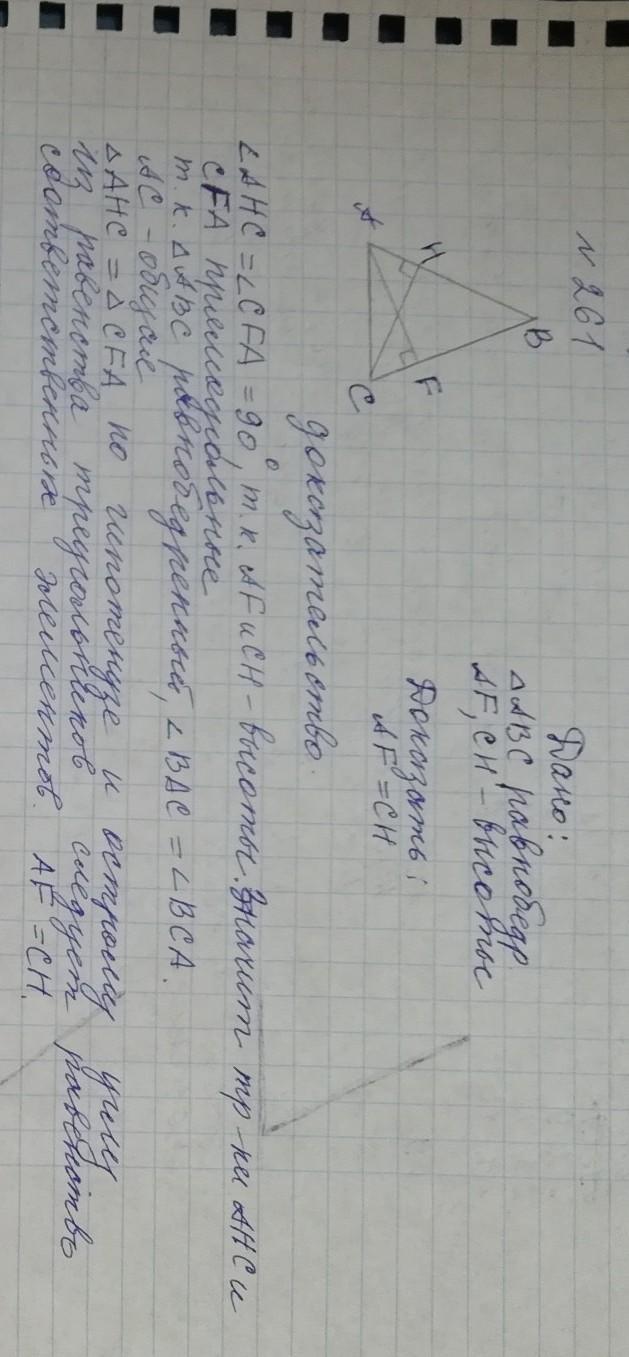 N 261
Дано:
△ABC равнобедр.
AF, CH - высоты
Доказать:
AF = CH
B
H
F
A
C
доказательство.
∠AHC = ∠CFA = 90°, т.к. AF и CH - высоты. Значит тр-ки AHC и
CFA прямоугольные
т.к. △ABC равнобедренный, ∠BAC = ∠BCA.
AC - общая
△AHC = △CFA по гипотенузе и острому углу
Из равенства треугольников следует равенство
соответственных элементов. AF = CH.